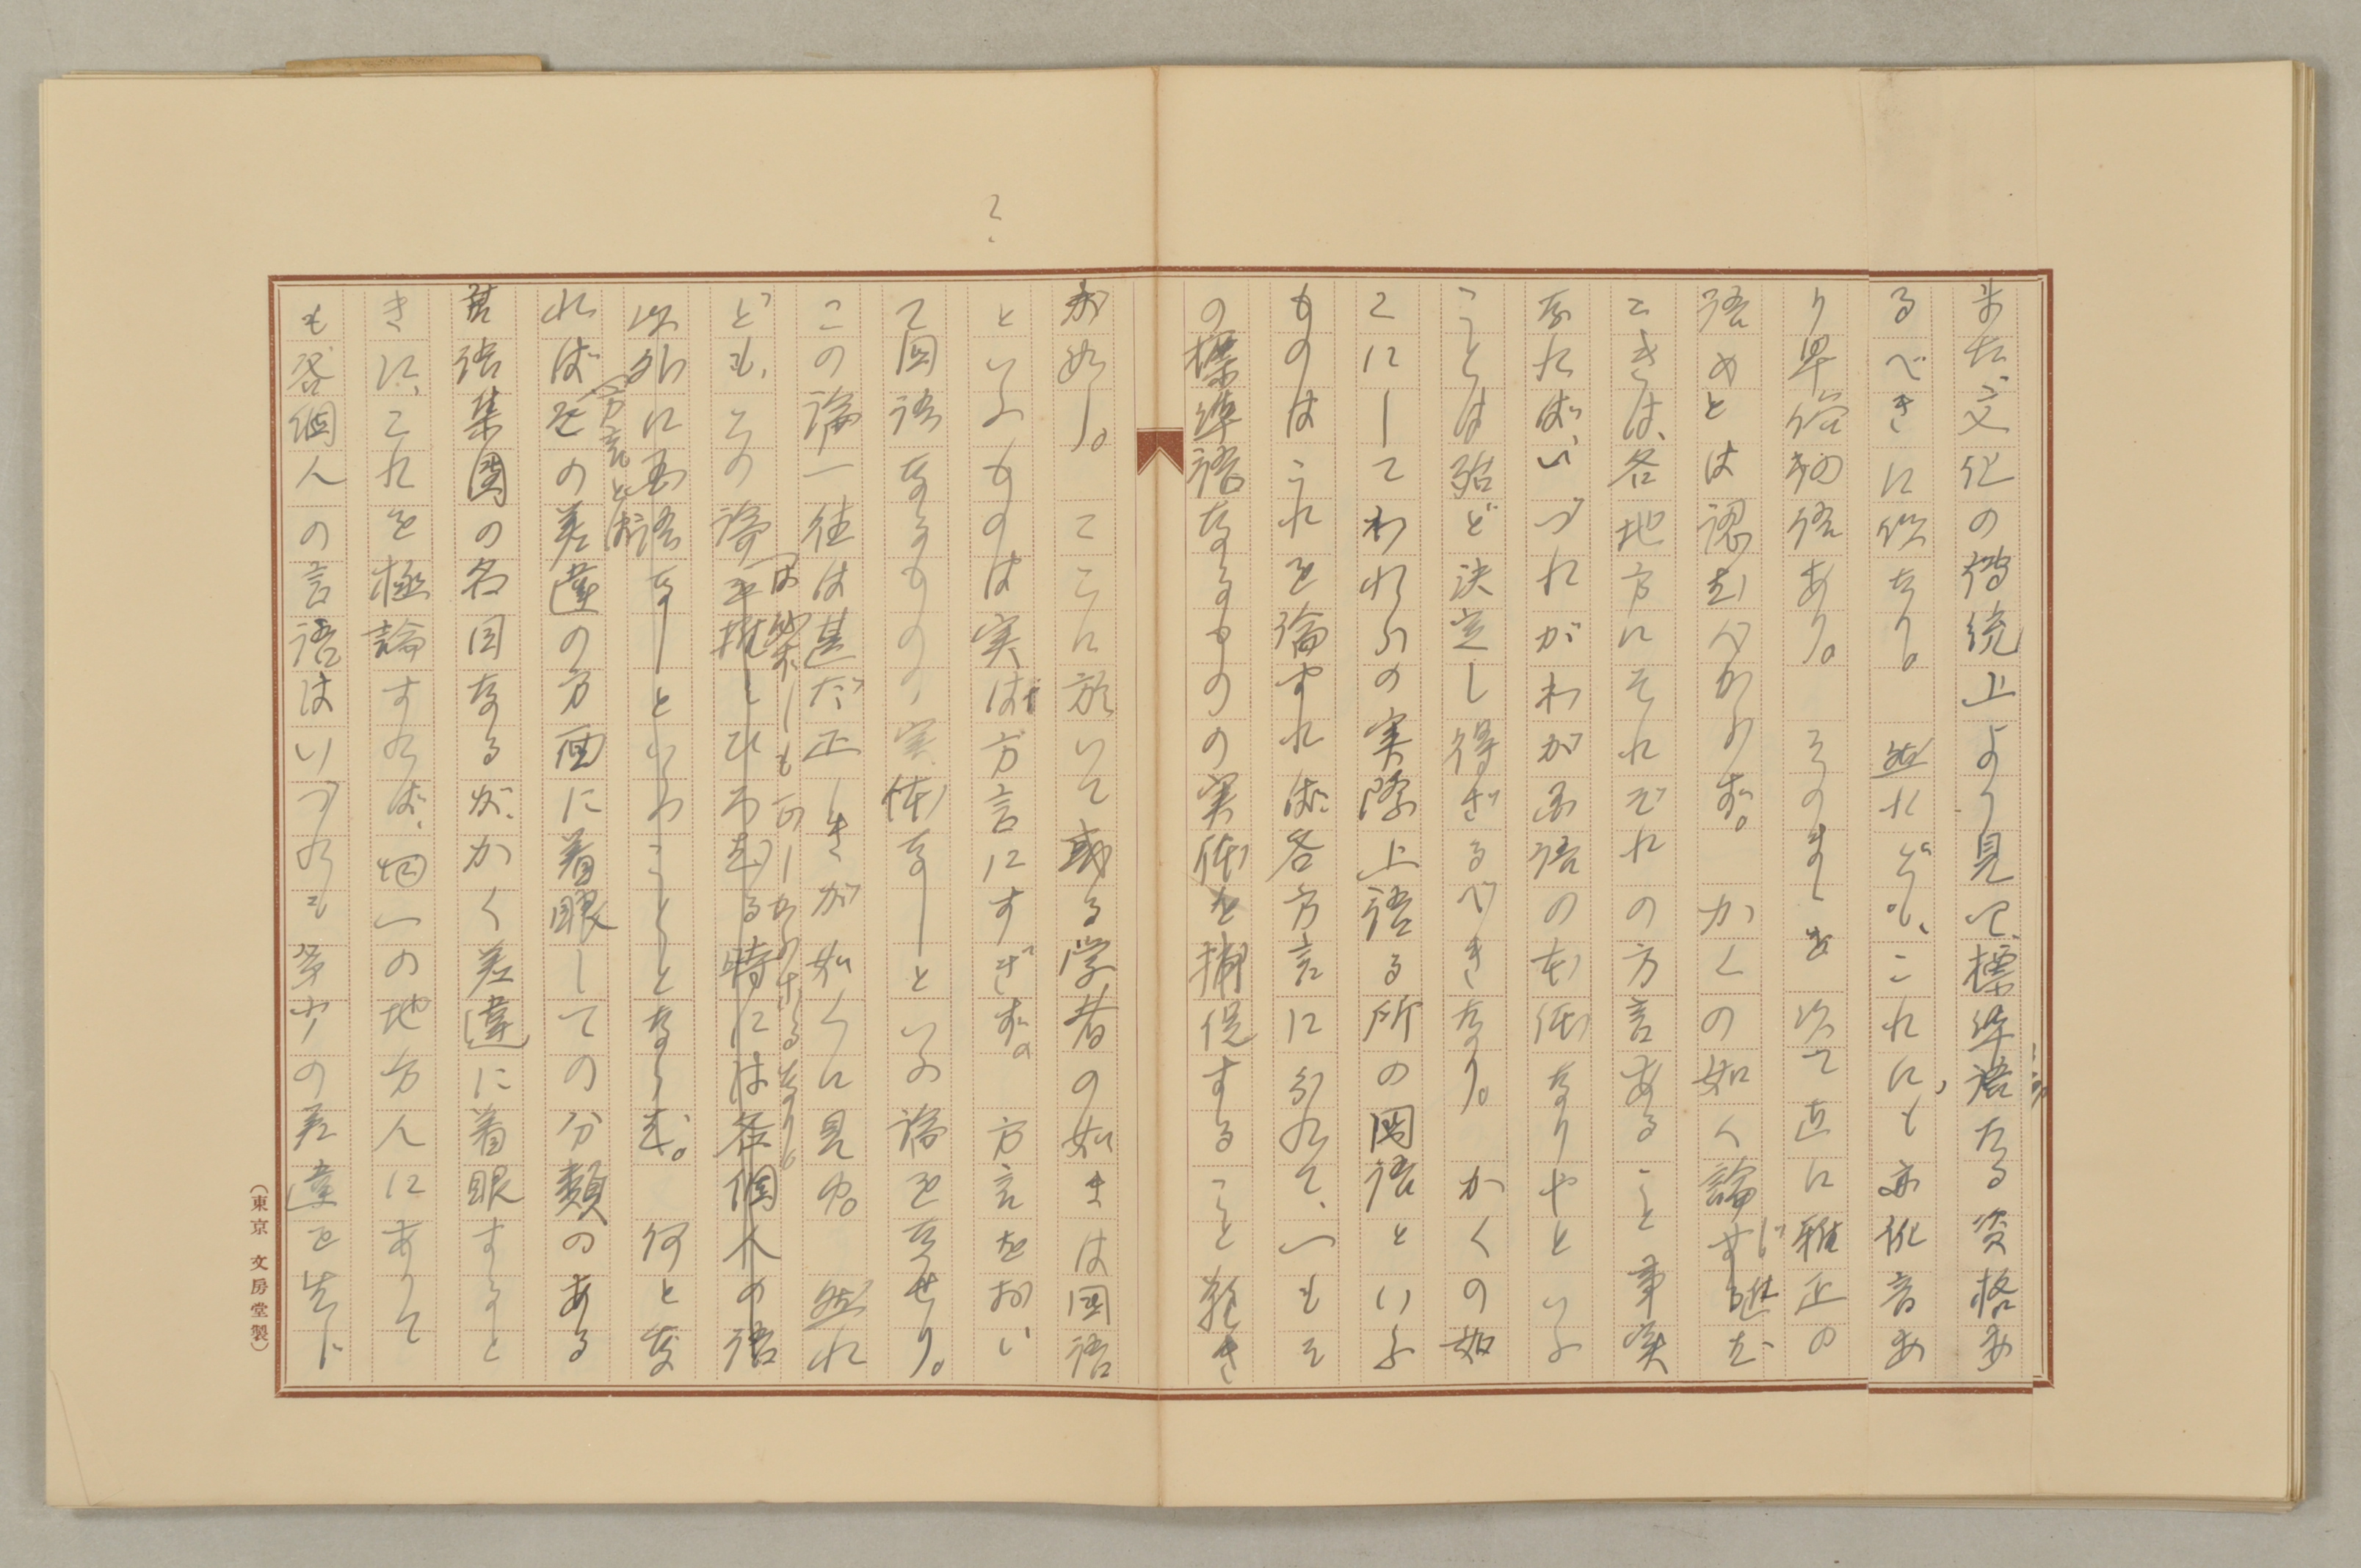 また、文化の伝統上より見て、標準語たる資格あ
るべきに似たり。然れども、これにも亦訛音あ
り卑俗の語あり。そのまゝを以て直に雅正の
語也とは認むべからず。かくの如く論じ進む
ときは、各地方にそれぞれの方言あること事実
なれば、いづれがわが国語の本体なりやといふ
ことは殆ど決定し得ざるべきなり。かくの如
くにしてわれらの実際上語る所の国語といふ
ものはこれを論ずれば各方言に分れて、一もそ
の標準語なるものの実体を捕捉すること難き
が如し。ここに於いて或る学者の如きは国語
といふものは実は方言にすぎず。方言をおい
て国語なるものの、実体なしといふ論をなせり。
この論一往は甚だ正しきが如くに見ゆ。然れ
ども、この論は
何とな
ればその差違の方面に着眼しての分類のある
方言とは
其語集団の名目なるが、かく差違に着眼すると
きに、これを極論すれば、同一の地方人にありて
も各個人の言語はいづれも多少の差違を生じ
？
（東京 文房堂製）